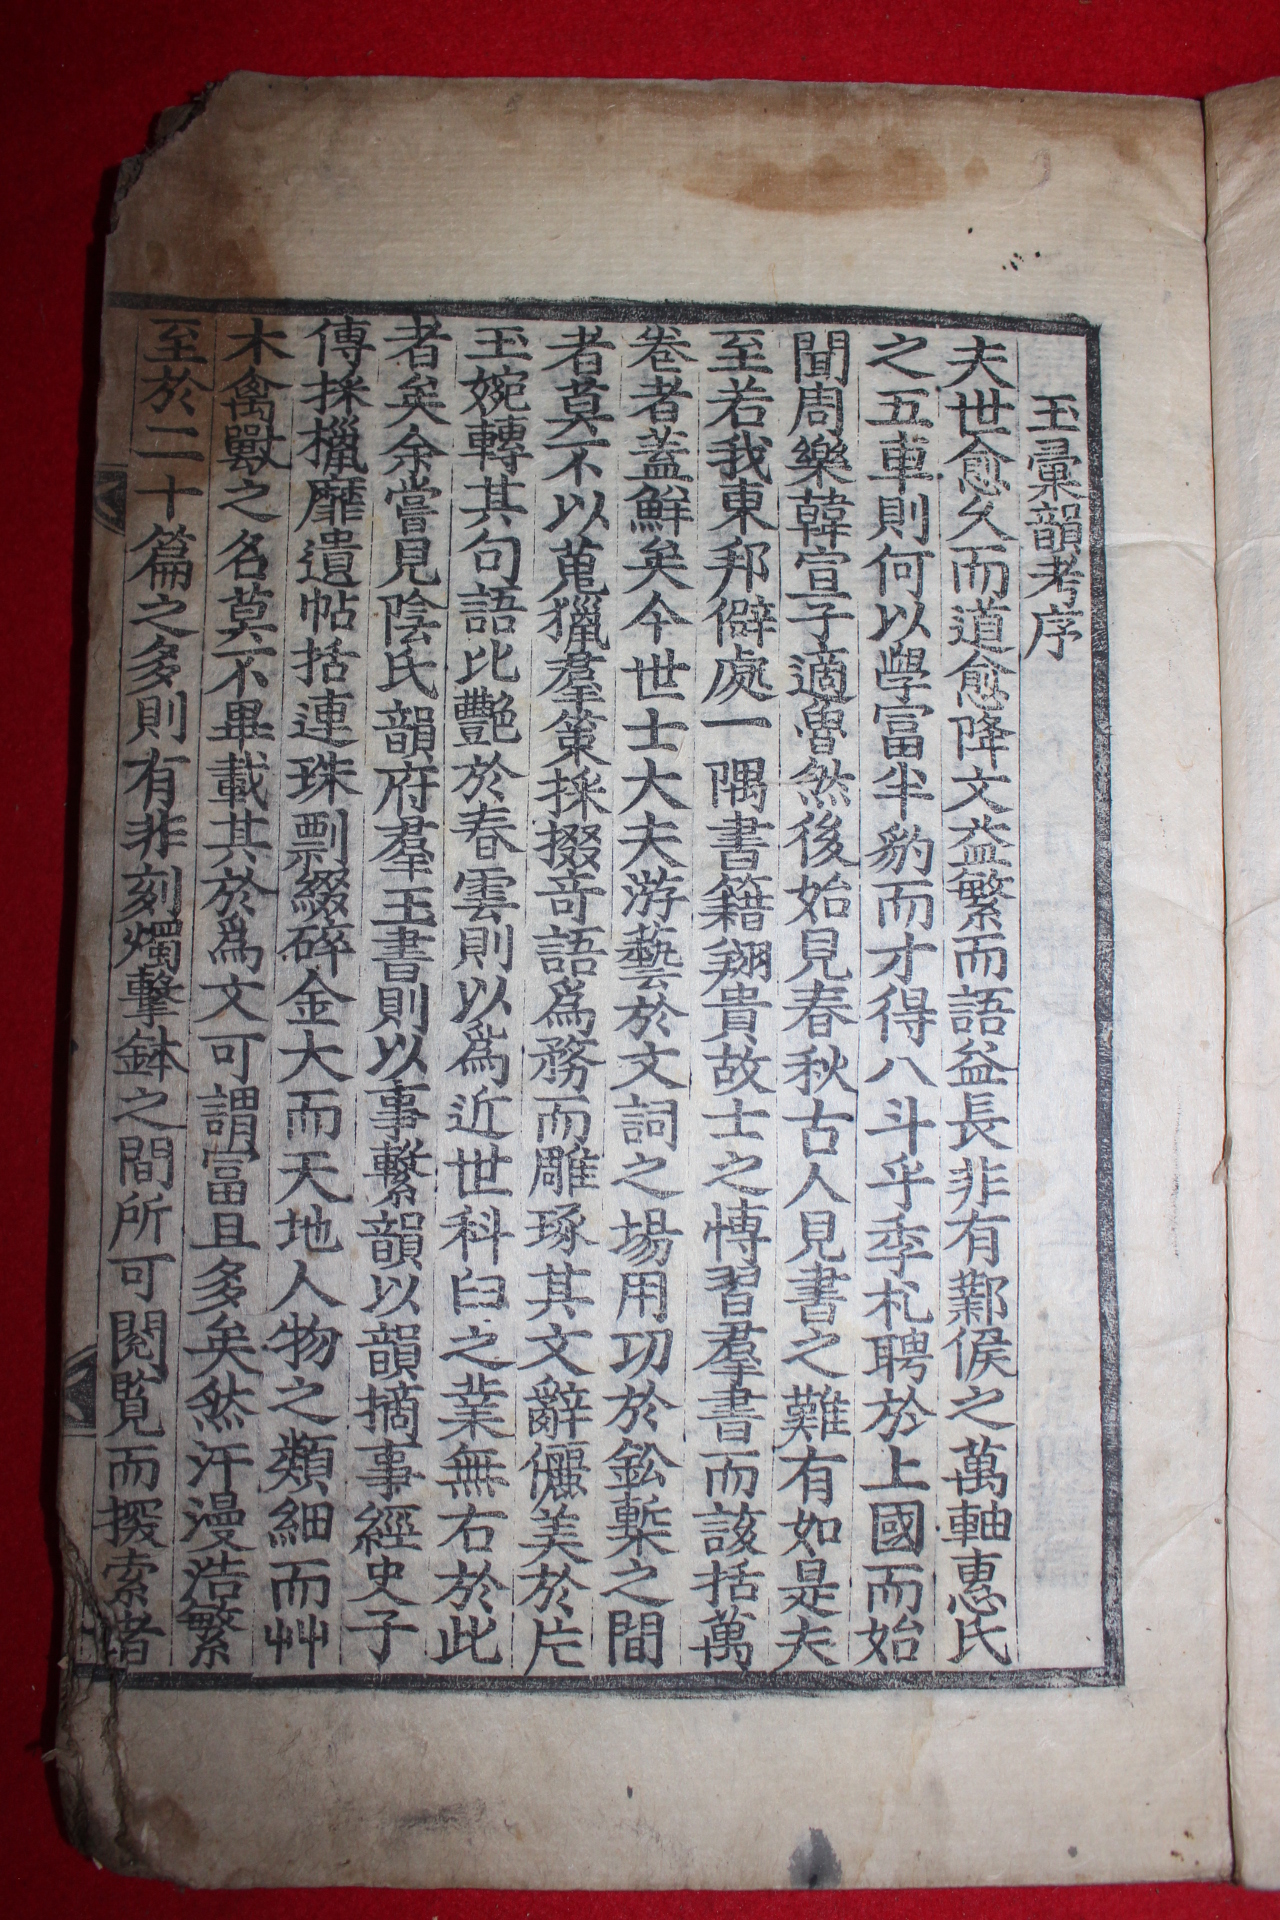 玉彙韻考序
夫世愈久而道愈降文益繁而語益長非有鄴侯之萬軸惠氏
之五車則何以學富半豹而才得八斗乎季札聘於上國而始
聞周樂韓宣子適魯然後始見春秋古人見書之難有如是夫
至若我東邦僻處一隅書籍翔貴故士之博習羣書而該括萬
卷者蓋鮮矣今世士大夫游藝於文詞之場用功於鉛槧之間
者莫不以蒐獵羣策採掇奇語爲務而雕琢其文辭儷美於片
玉婉轉其句語比艷於春雲則以爲近世科臼之業無右於此
者矣余嘗見陰氏韻府羣玉書則以事繫韻以韻摘事經史子
傳採檵靡遺帖括連珠剽綴碎金大而天地人物之類細而艸
木禽獸之名莫不畢載其於爲文可謂富且多矣然汗漫浩繁
至於二十篇之多則有非刻燭擊鉢之間所可閱覧而探索者